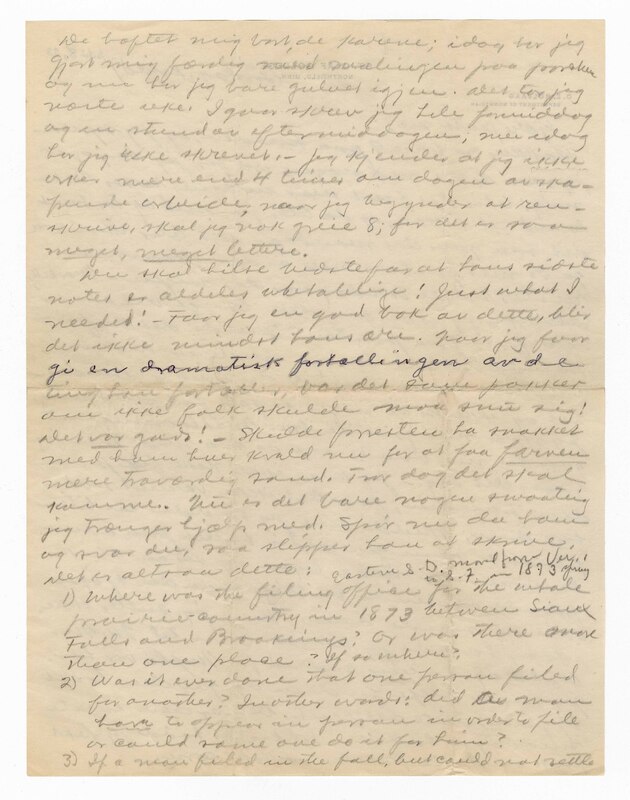 De høftet mig bort, de karene; idag har jeg
gjort mig færdig med malingen paa porchen
og nu har jeg bare gulvet igjen. Det tør jeg
røre ikke. Igaar skrev jeg hele formiddag
og en stund av eftermiddagen; men idag
har jeg ikke skrevet. – Jeg kjender at jeg ikke
orker mere end 4 timer om dagen av ska-
pende arbeide; naar jeg begynder at ren-
skrive, skal jeg nok greie 8; for det er saa
meget, meget lettere.
Du skal hilse bedstefar at hans sidste
notes er aldeles ubetalelige! Just what I
needed! – Faar jeg en god bok av dette, blir
det ikke mindst hans ære. Naar jeg faar
gi en dramatisk fortællingen av de
ting han fortæller, var det som pokker
om ikke folk skulde more sig!
Det var gods! – Skulde presten ha snakket
med ham her kveld nu for at faa farven
mere troværdig sand. Tror dog det skal
komme. Nu er det bare nogen smaating
jeg trænger hjælp med. Spør nu du ham
og svar du, saa slipper han at skrive.
Det er altsaa dette:
eastern S. D. moved from Ver.
in S. F. in 1873 spring
1) Where was the filing office for the whole
prairie-country in 1873 between Sioux
Falls and Brookings? Or was there more
than one place? If so where?
2) Was it ever done that one person filed
for another? In other words: did a man
have to appear in person in order to file
or could some one do it for him?
3) If a man filed in the fall, but could not settle